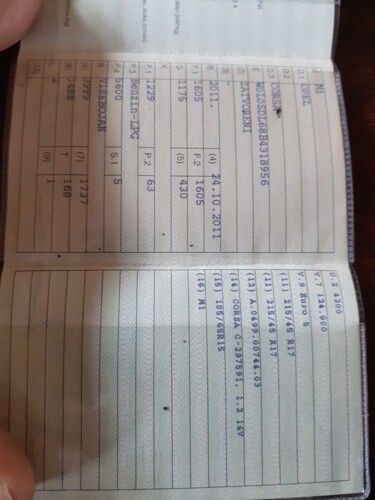 J M1
D.1 OPEL
D.2
D.3 CORSA
E W0L0SDL68B4318956
ZATVORENI
B 2011. (4) 24.10.2011
F.1 1605 F.2 1605
G 1175 (5) 430
K
P.1 1229 P.2 63
P.3 Benzin-LPG
P.4 5600 S.1 5
R VIŠEBOJAN
(6) 3999 (7) 1737
(8) 1488 T 168
L 2 (9) 1
(10)
U.2 4200
V.7 124.000
V.9 Euro 5
(11) 215/45 R17
(11) 215/45 R17
(12) A.0499.00744.03
(14) CORSA C-297591, 1.2 16V
(15) 185/65R15
(16) M1